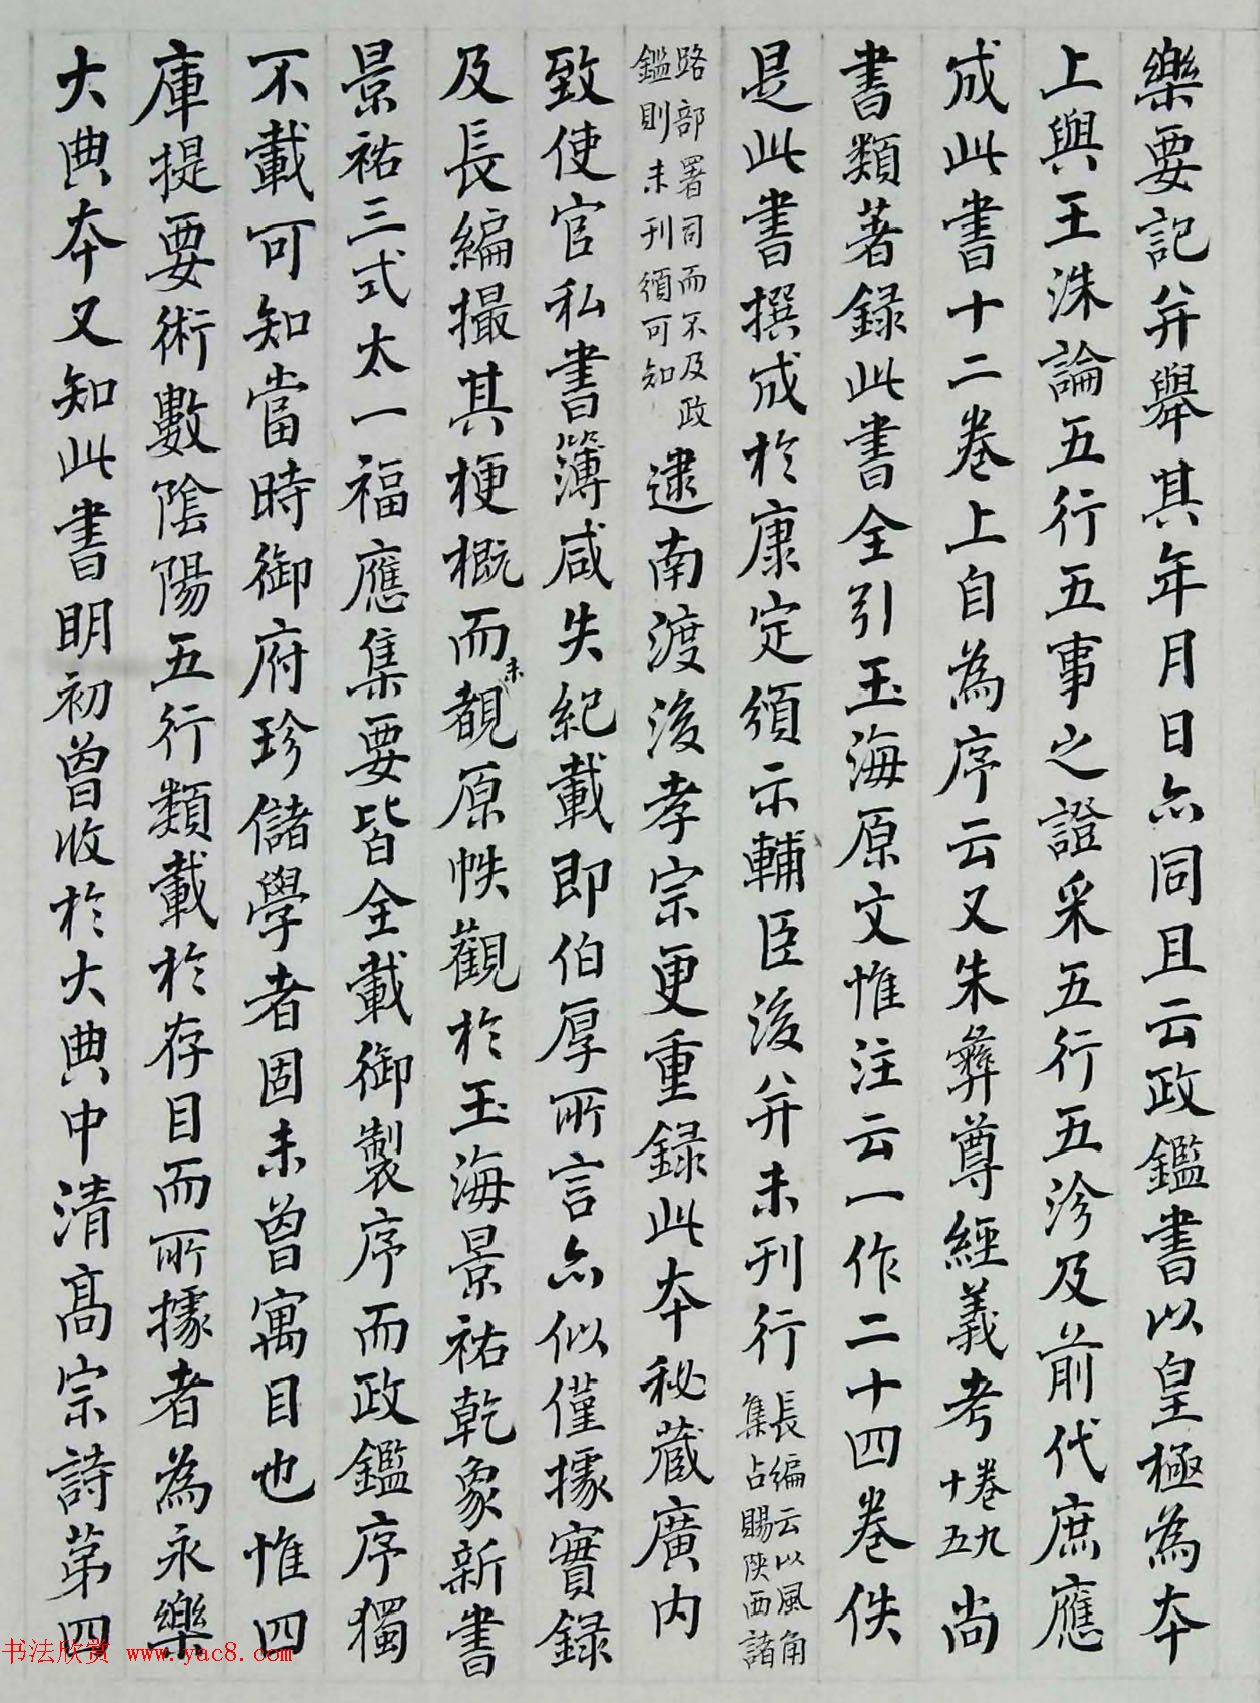 樂要記并舉其年月日亦同且云政鑑書以皇極為本
上與王洙論五行五事之證采五行五沴及前代庶應
成此書十二卷上自為序云又朱彝尊經義考卷九十五尚
書類著録此書全引玉海原文惟注云一作二十四卷佚
是此書撰成於康定頒示輔臣後并未刊行長編云以風角集占賜陝西諸
路部署司而不及政鑑則未刊頒可知逮南渡後孝宗更重録此本秘藏廣内
致使官私書簿咸失紀載即伯厚所言亦似僅據實録
及長編撮其梗概而未覩原帙觀於玉海景祐乾象新書
景祐三式太一福應集要皆全載御製序而政鑑序獨
不載可知當時御府珍儲學者固未曾寓目也惟四
庫提要術數陰陽五行類載於存目而所據者為永樂
大典本又知此書明初曾收於大典中清高宗詩第四
书法欣赏 www.yac8.com